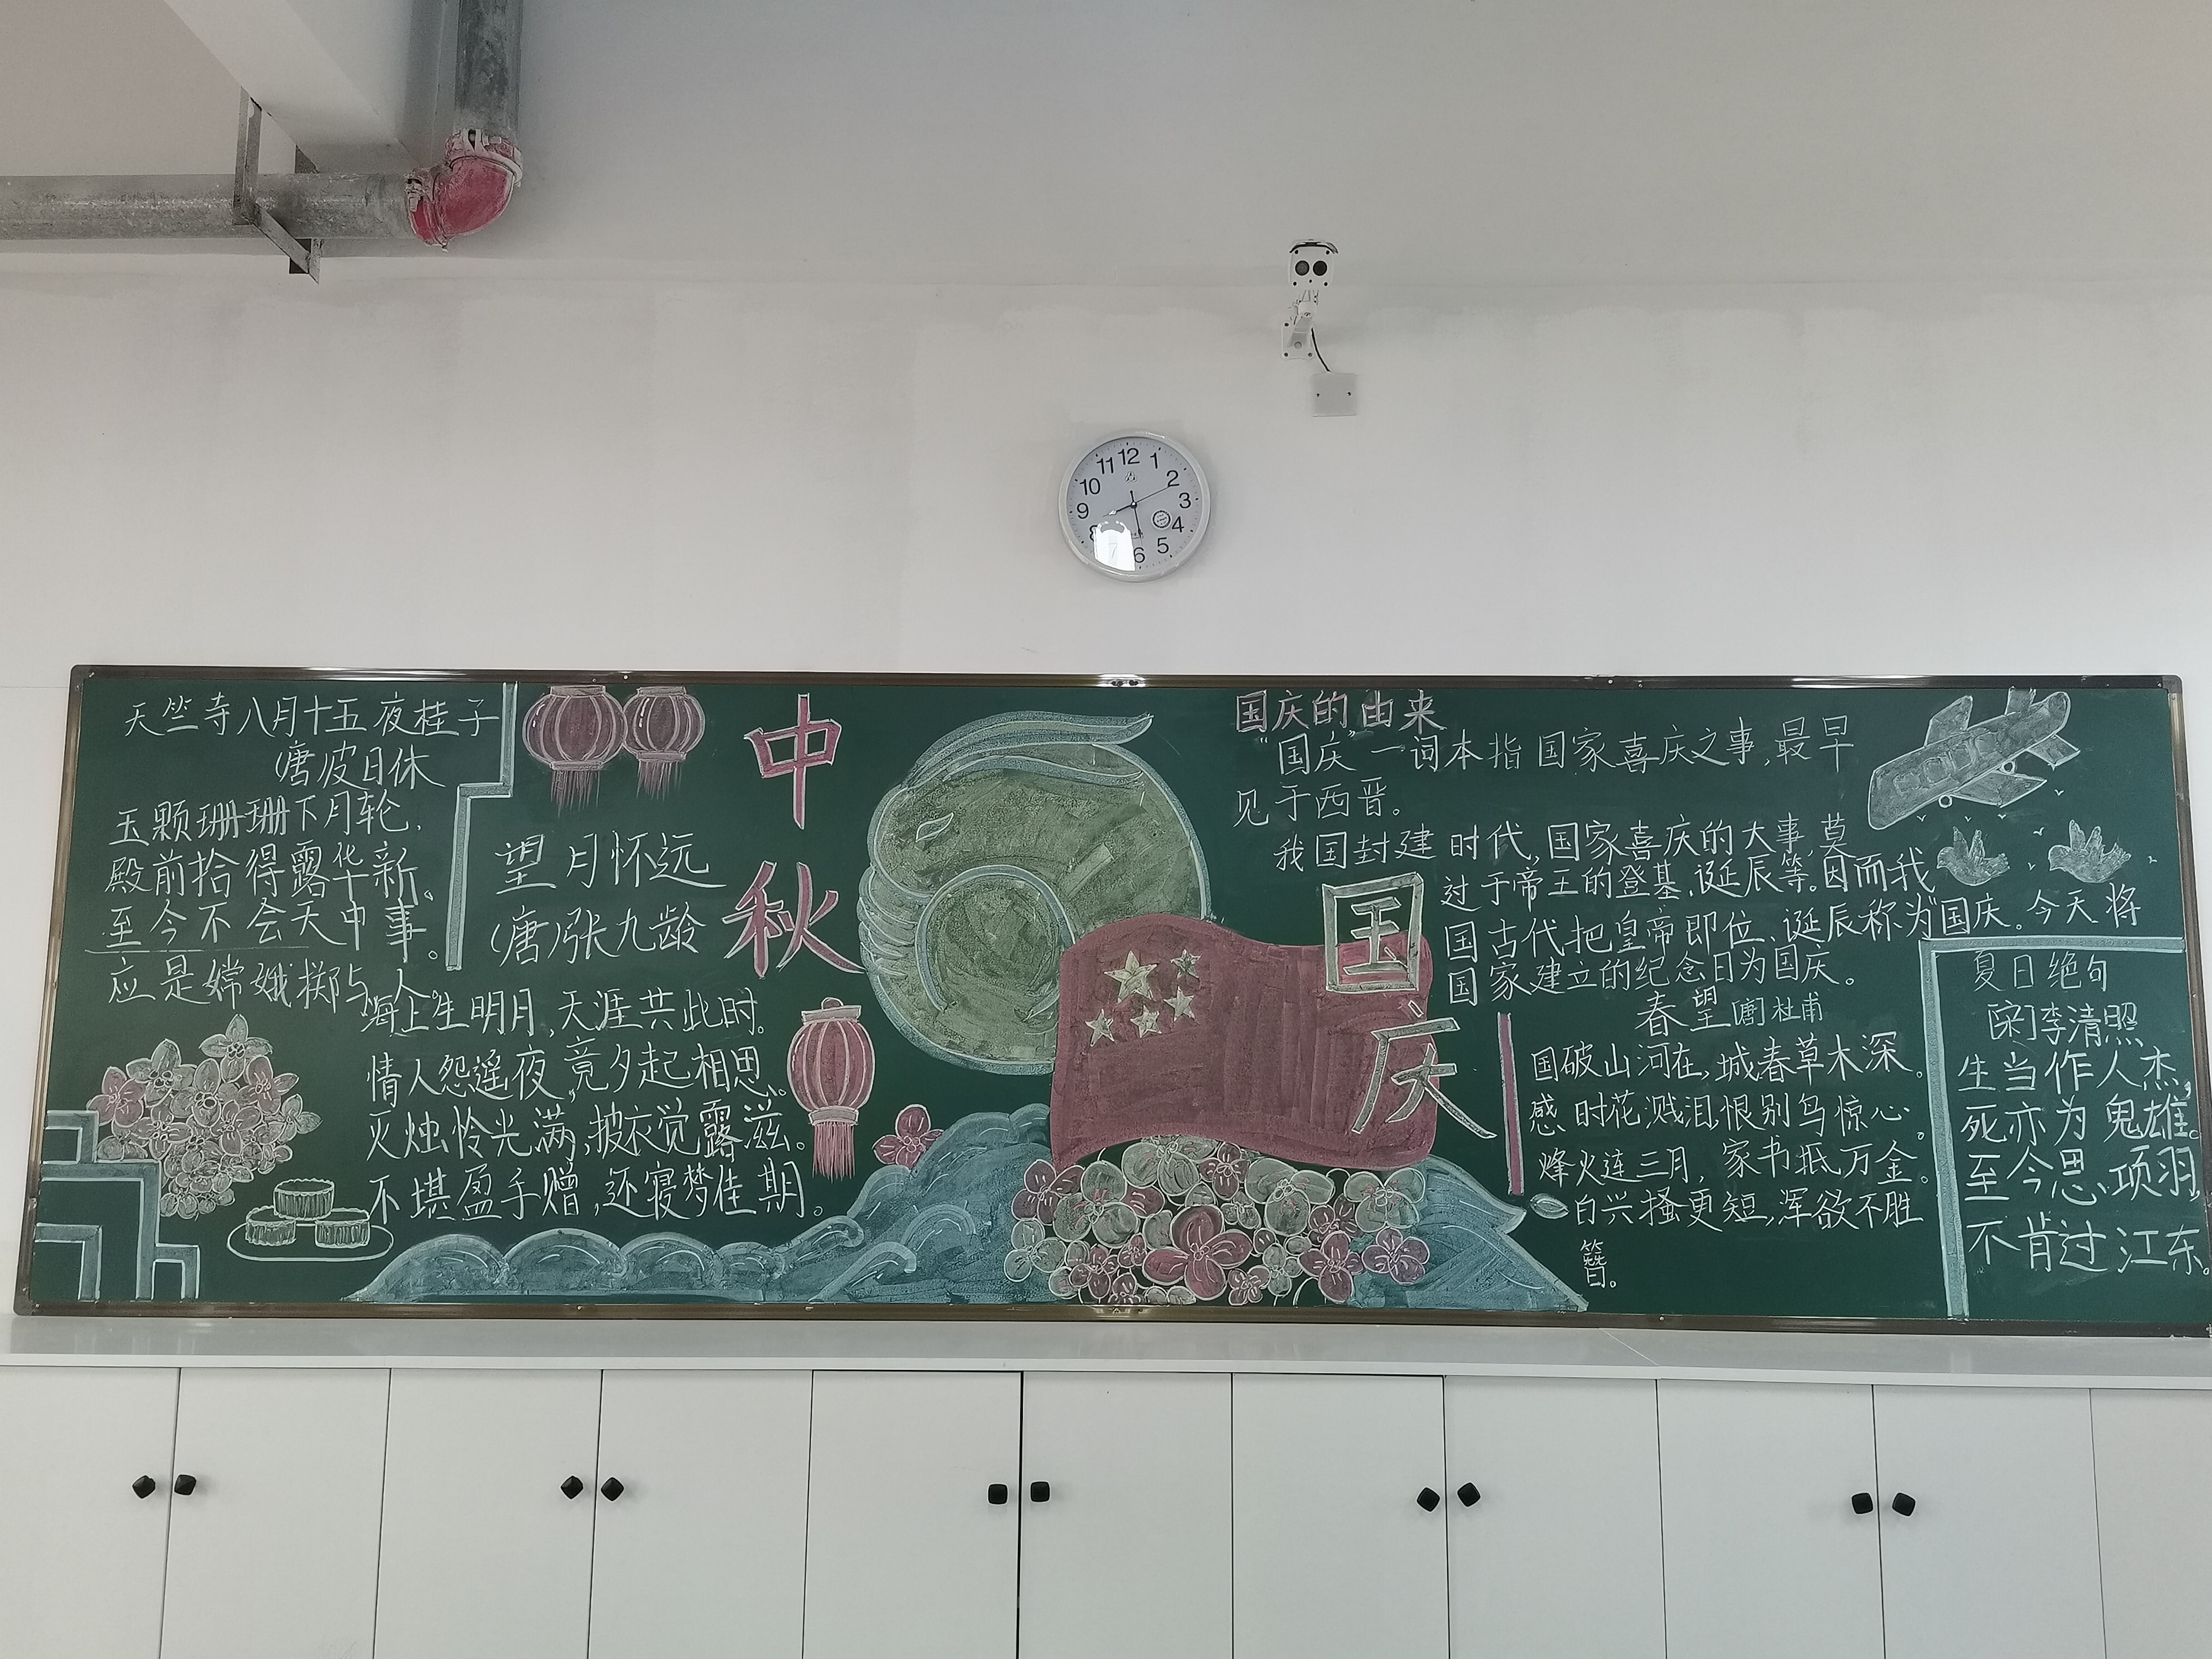 天竺寺八月十五夜桂子
(唐皮日休
玉颗珊珊下月轮,
殿前拾得露华新。
至今不会天中事。
应是嫦娥掷与人。
中
秋
望月怀远
(唐)张九龄
海上生明月,天涯共此时。
情人怨遥夜,竟夕起相思。
灭烛怜光满,披衣觉露滋。
不堪盈手赠,还寝梦佳期。
国
庆
国庆的由来
“国庆”一词本指国家喜庆之事,最早
见于西晋。
我国封建时代,国家喜庆的大事,莫
过于帝王的登基、诞辰等。因而我
国古代把皇帝即位、诞辰称为“国庆。今天将
国家建立的纪念日为国庆。
春望[唐]杜甫
国破山河在,城春草木深。
感时花溅泪,恨别鸟惊心。
烽火连三月,家书抵万金。
白兴搔更短,浑欲不胜
簪。
夏日绝句
[宋]李清照
生当作人杰,
死亦为鬼雄。
至今思项羽,
不肯过江东。
12
1
2
3
4
5
6
7
8
9
10
11